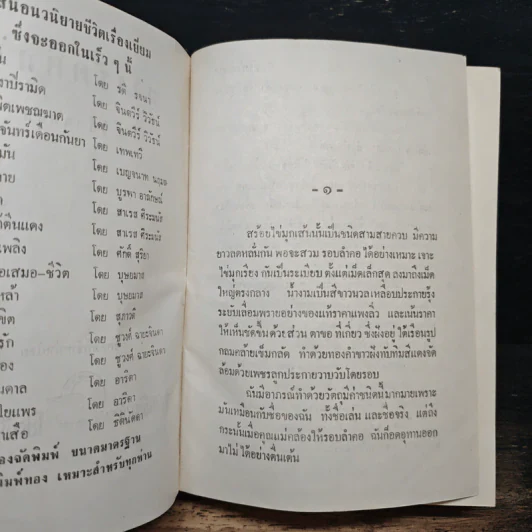 สนอนวนิยายชีวิตเรื่องเยี่ยม
ซึ่งจะออกในเร็ว ๆ นี้
โดย รตี รจนา
าปีรามิด โดย จินตวีร์ วิวัธน์
ิตเพชฌฆาต โดย จินตวีร์ วิวัธน์
จันทร์เดือนกันยา โดย เทพเทวี
มัน โดย เบญจนาท
าย โดย บูรพา อารักษณ์
โดย สาเรส ศิระมนัส
ตีนแดง โดย สาเรส ศิระมนัส
เพลิง โดย ศักดิ์ สุริยา
อเสมอ-ชีวิต โดย บุษยมาส
หล้า โดย บุษยมาส
ขิต โดย สุภาวดี
รัก โดย ชูวงศ์ ฉายะจินดา
อง โดย ชูวงศ์ ฉายะจินดา
าดาล โดย อาริตา
ไยแพร โดย อาริตา
าเสือ โดย ชตินัดดา
องจัดพิมพ์ ขนาดมาตรฐาน
พิมพ์ทอง เหมาะสำหรับทุกท่าน
- ๑ -
สร้อยไข่มุกเส้นนั้นเป็นชนิดสามสายควบ มีความ
ยาวลดหลั่นกัน พอจะสวม รอบลำคอ ได้อย่างเหมาะ เจาะ
ไข่มุกเรียง กันเป็นระเบียบ ตั้งแต่เม็ดเล็กสุด ลงมาถึงเม็ด
ใหญ่ตรงกลาง น้ำงามเป็นสีขาวนวลเหลือบประกายรุ้ง
ระยับเลื่อมพรายอย่างของแท้ราคาแพงลิ่ว และเน้นราคา
ให้เห็นชัดขึ้น ด้วย ส่วน ตาขอ ที่เกี่ยว ซึ่งฝังอยู่ ใต้เรือนรูป
กลมคล้ายเข็มกลัด ทำด้วยทองคำขาวฝังทับทิมสีแดงจัด
ล้อมด้วยเพชรลูกประกายวาบวับโดยรอบ
ฉันมีอาภรณ์ทำด้วยวัตถุมีค่าชนิดนี้มากมายเพราะ
มันเหมือนกับชื่อของฉัน ทั้งชื่อเล่น และชื่อจริง แต่ถึง
กระนั้นเมื่อคุณแม่คล้องให้รอบลำคอ ฉันก็อดอุทานออก
มาไม่ ได้อย่างตื่นเต้น